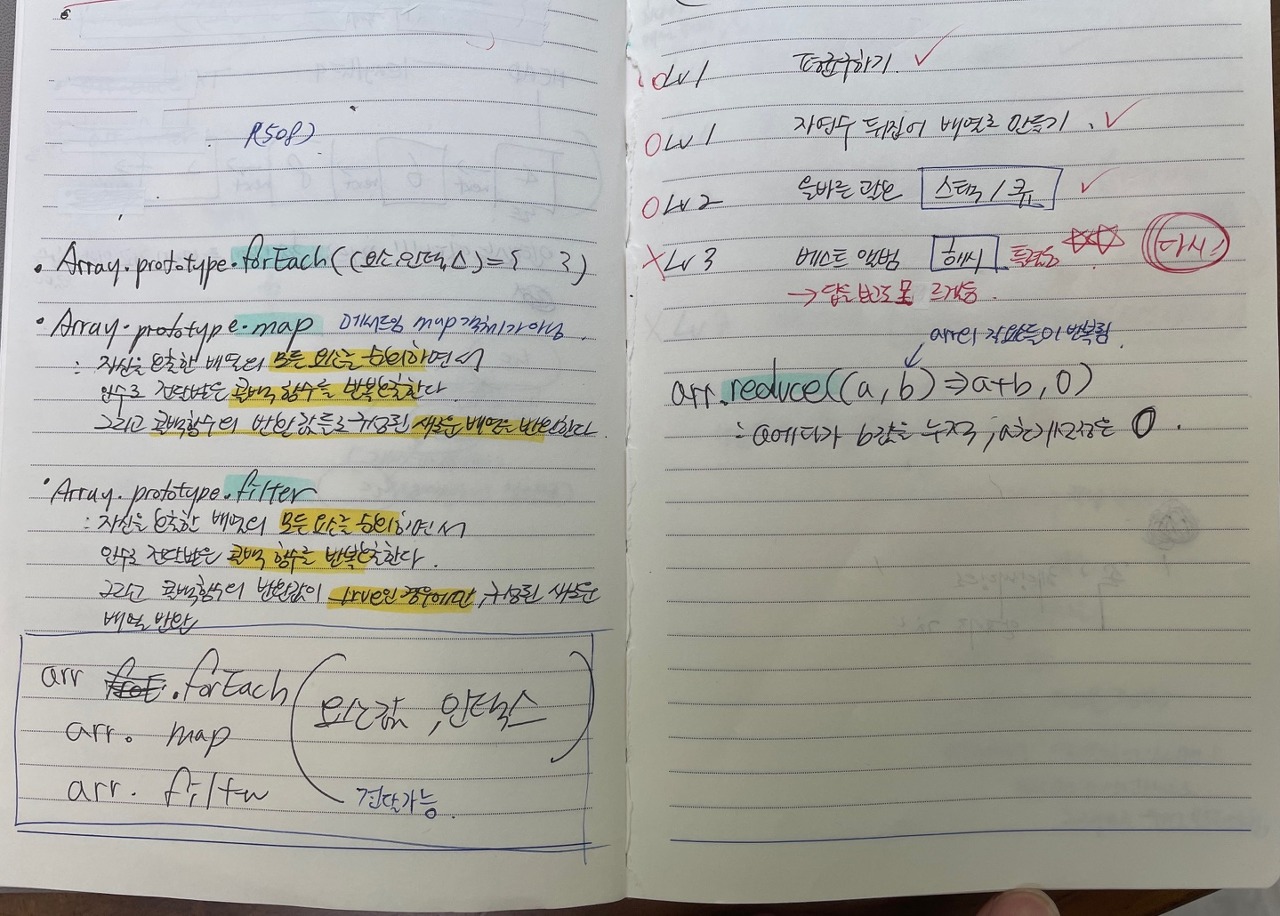 P.508)
• Array.prototype.forEach((요소, 인덱스)={ })
• Array.prototype.map 메서드임 map 객체가 아님
: 자신을 호출한 배열의 모든 요소를 순회하면서
인수로 전달받은 콜백 함수를 반복호출한다
그리고 콜백함수의 반환값들로 구성된 새로운 배열을 반환한다.
• Array.prototype.filter
: 자신을 호출한 배열의 모든 요소를 순회하면서
인수로 전달받은 콜백 함수를 반복호출한다.
그리고 콜백함수의 반환값이 true인 경우에만, 구성된 새로운
배열 반환
arr .forEach
arr. map (요소값, 인덱스)
arr. filter
전달가능.
O Lv1 평균구하기. ✓
O Lv1 자연수 뒤집어 배열로 만들기. ✓
O Lv2 올바른 괄호 스택/큐 ✓
X Lv3 베스트 앨범 해시 ☆☆ 다시
→ 답을 번도 모르겠음.
arr의 각 요소들이 반복됨
arr.reduce((a, b)⇒a+b, 0)
: a에다가 b값을 누적, a초기설정은 0.